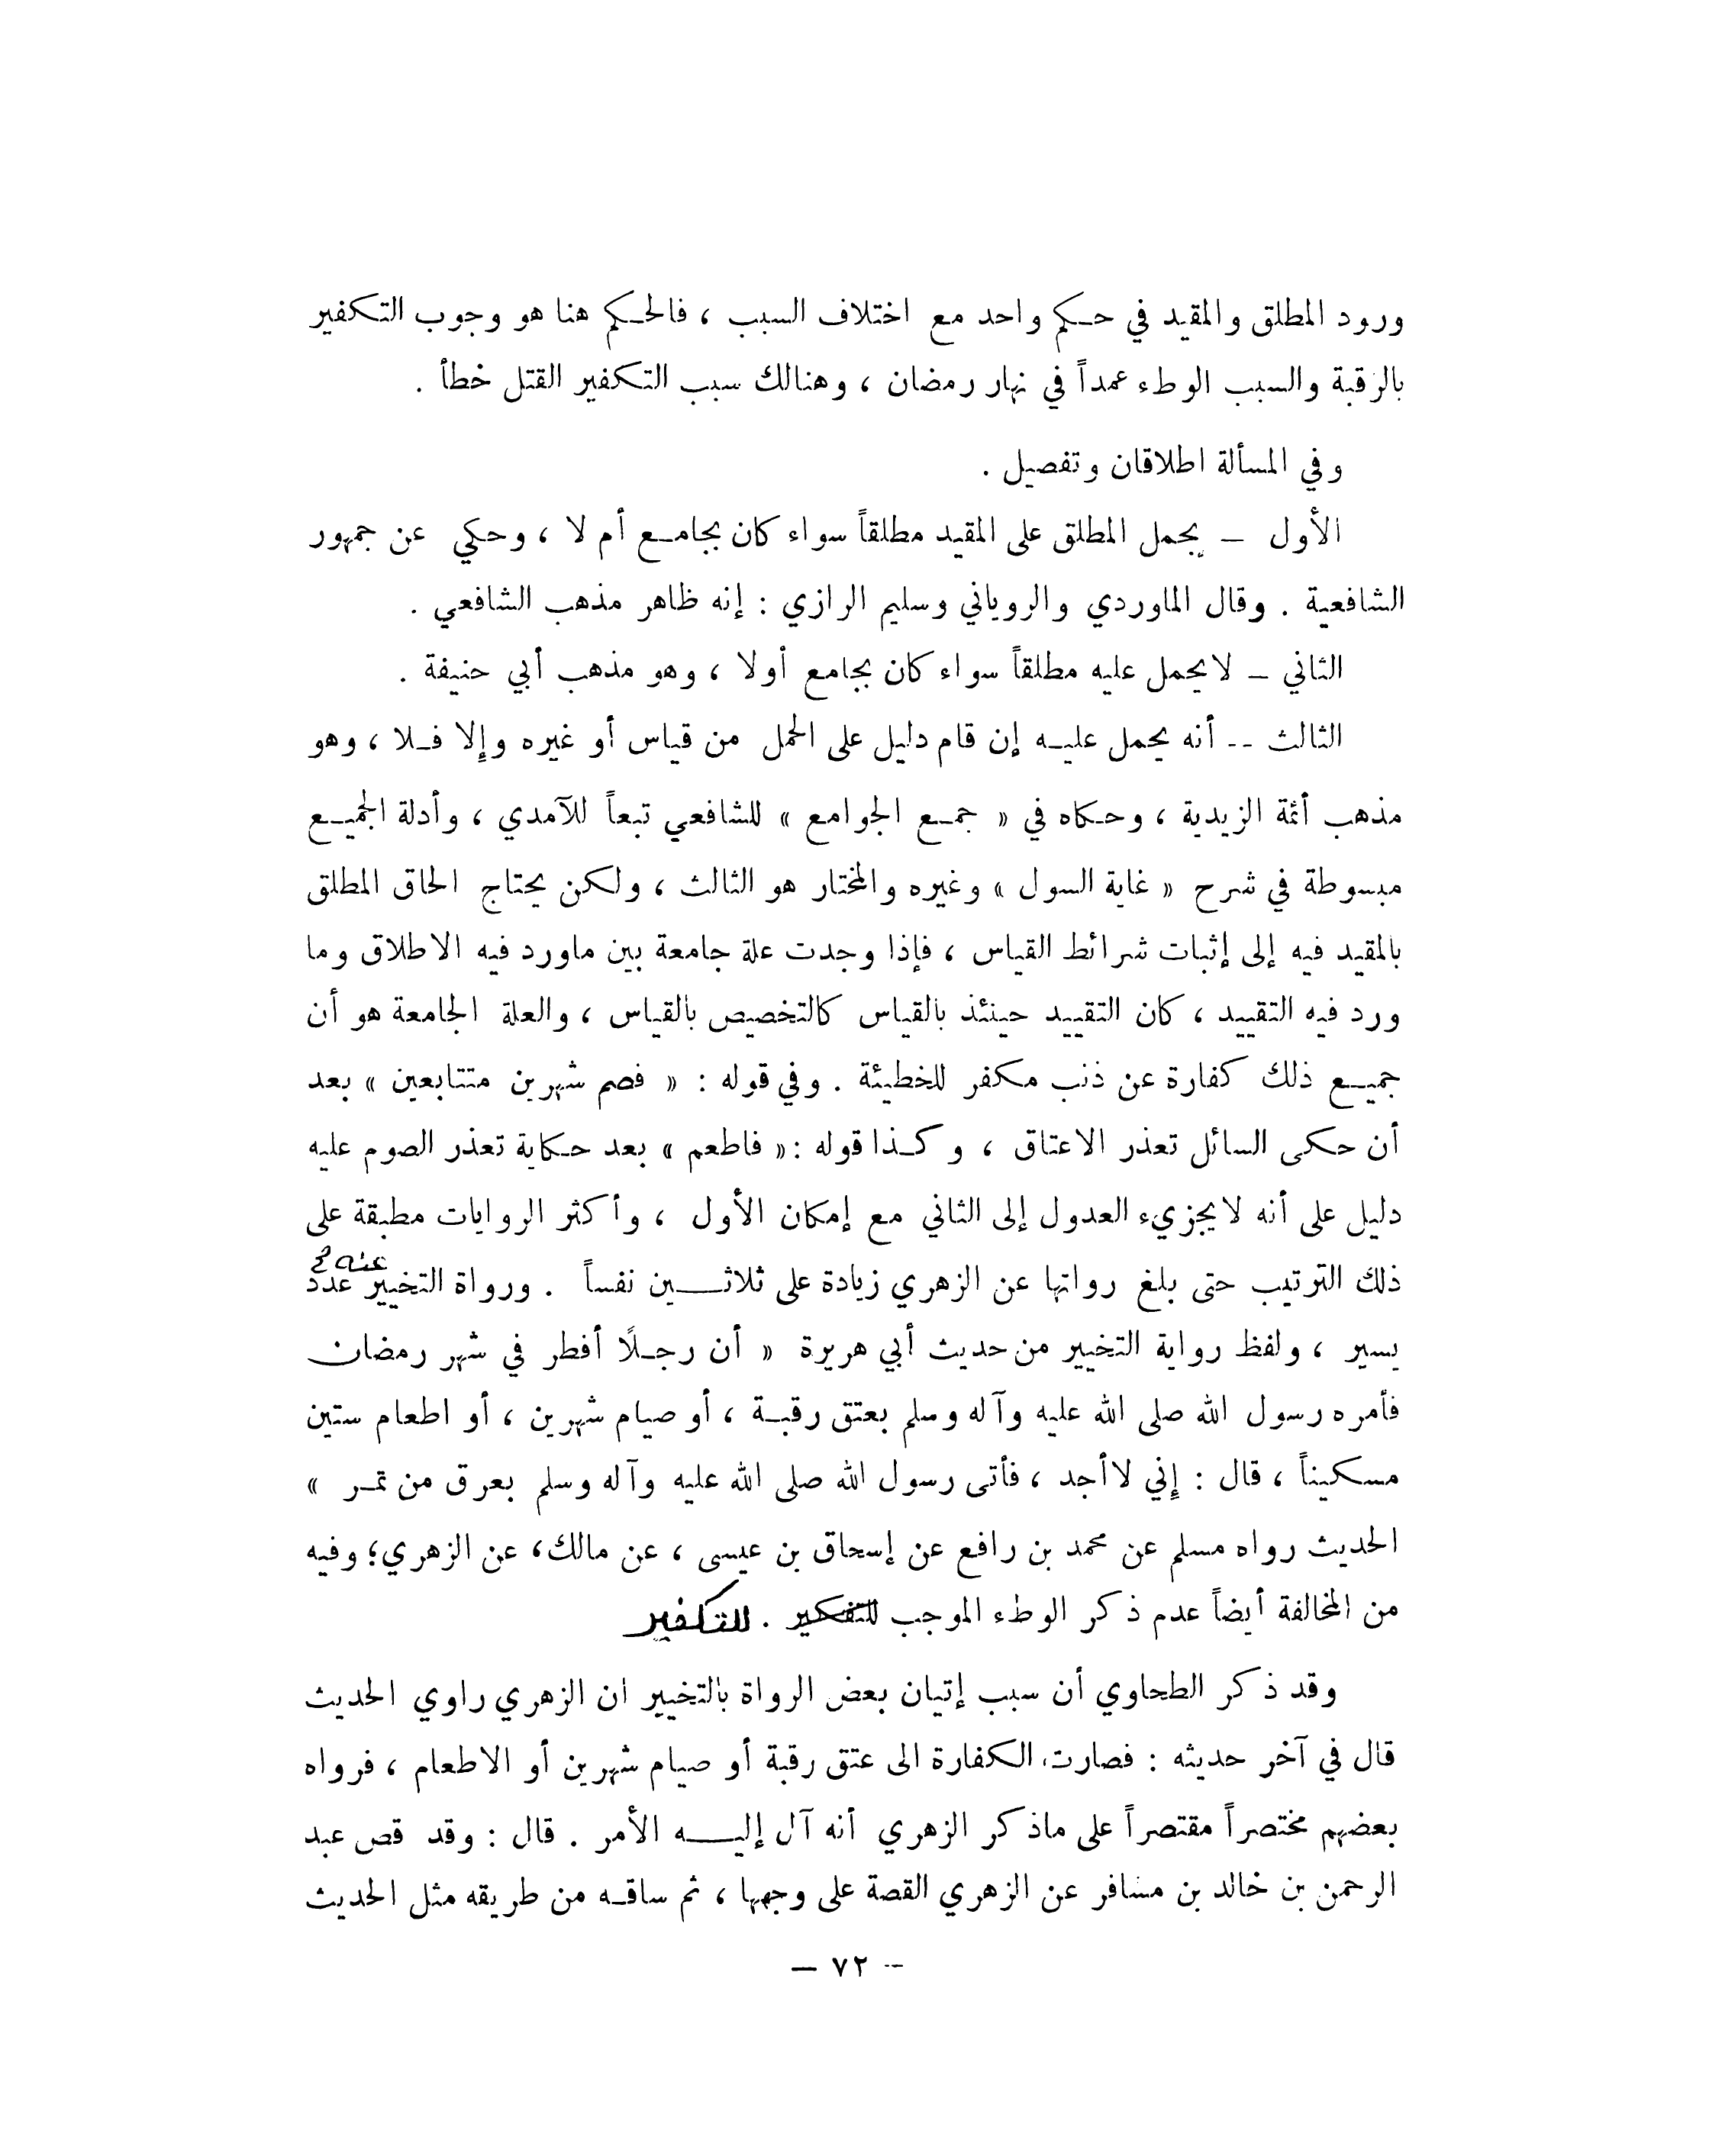 ورود المطلق والمقيد في حكم واحد مع اختلاف السبب ، فالحكم هنا هو وجوب التكفير
بالرقبة والسبب الوطء عمداً في نهار رمضان ، وهنالك سبب التكفير القتل خطأ .
وفي المسألة اطلاقان وتفصيل .
الأول – يحمل المطلق على المقيد مطلقاً سواء كان بجامع أم لا ، وحكي عن جمهور
الشافعية . وقال الماوردي والروياني وسليم الرازي : إنه ظاهر مذهب الشافعي .
الثاني – لا يحمل عليه مطلقاً سواء كان بجامع أولا ، وهو مذهب أبي حنيفة .
الثالث -- أنه يحمل عليه إن قام دليل على الحمل من قياس أو غيره وإلا فلا ، وهو
مذهب أئمة الزيدية ، وحكاه في « جمع الجوامع » للشافعي تبعاً للآمدي ، وأدلة الجميع
مبسوطة في شرح « غاية السول » وغيره والمختار هو الثالث ، ولكن يحتاج الحاق المطلق
بالمقيد فيه إلى إثبات شرائط القياس ، فإذا وجدت علة جامعة بين ماورد فيه الاطلاق وما
ورد فيه التقييد ، كان التقييد حينئذ بالقياس كالتخصيص بالقياس ، والعلة الجامعة هو أن
جميع ذلك كفارة عن ذنب مكفر للخطيئة . وفي قوله : « فصم شهرين متتابعين » بعد
أن حكى السائل تعذر الاعتاق ، وكذا قوله : « فاطعم » بعد حكاية تعذر الصوم عليه
دليل على أنه لا يجزيء العدول إلى الثاني مع إمكان الأول ، وأكثر الروايات مطبقة على
ذلك الترتيب حتى بلغ رواتها عن الزهري زيادة على ثلاثين نفساً . ورواة التخيير عنه عدد
يسير ، ولفظ رواية التخيير من حديث أبي هريرة « أن رجلًا أفطر في شهر رمضان
فأمره رسول الله صلى الله عليه وآله وسلم بعتق رقبة ، أو صيام شهرين ، أو اطعام ستين
مسكيناً ، قال : إني لا أجد ، فأتى رسول الله صلى الله عليه وآله وسلم بعرق من تمر »
الحديث رواه مسلم عن محمد بن رافع عن إسحاق بن عيسى ، عن مالك، عن الزهري؛ وفيه
من المخالفة أيضاً عدم ذكر الوطء الموجب للتفكير . للتكفير
وقد ذكر الطحاوي أن سبب إتيان بعض الرواة بالتخيير ان الزهري راوي الحديث
قال في آخر حديثه : فصارت الكفارة الى عتق رقبة أو صيام شهرين أو الاطعام ، فرواه
بعضهم مختصراً مقتصراً على ماذكر الزهري أنه آل إليه الأمر . قال : وقد قص عبد
الرحمن بن خالد بن مسافر عن الزهري القصة على وجهها ، ثم ساقه من طريقه مثل الحديث
- ٧٢ —